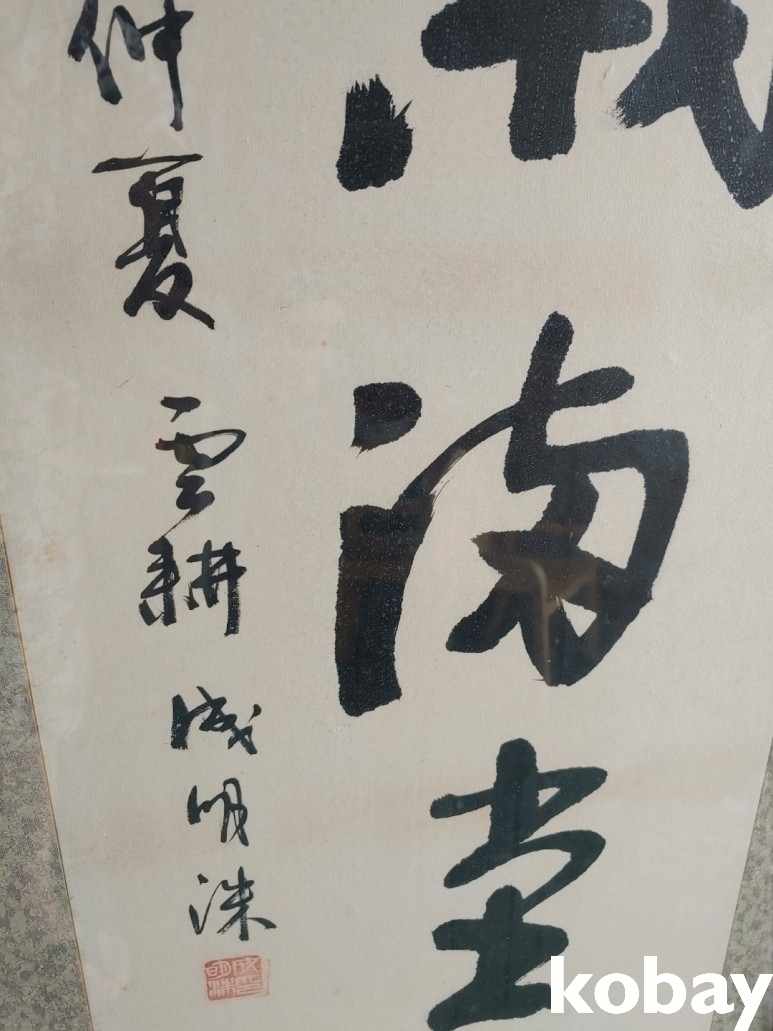 滿堂
仲夏 雲耕 成明洙
kobay